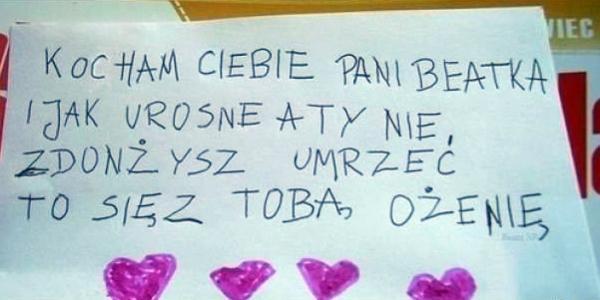 WIEC
KOCHAM CIEBIE PANI BEATKA
I JAK UROSNE A TY NIE,
ZDONŻYSZ UMRZEĆ
TO SIĘ Z TOBĄ OŻENIĘ